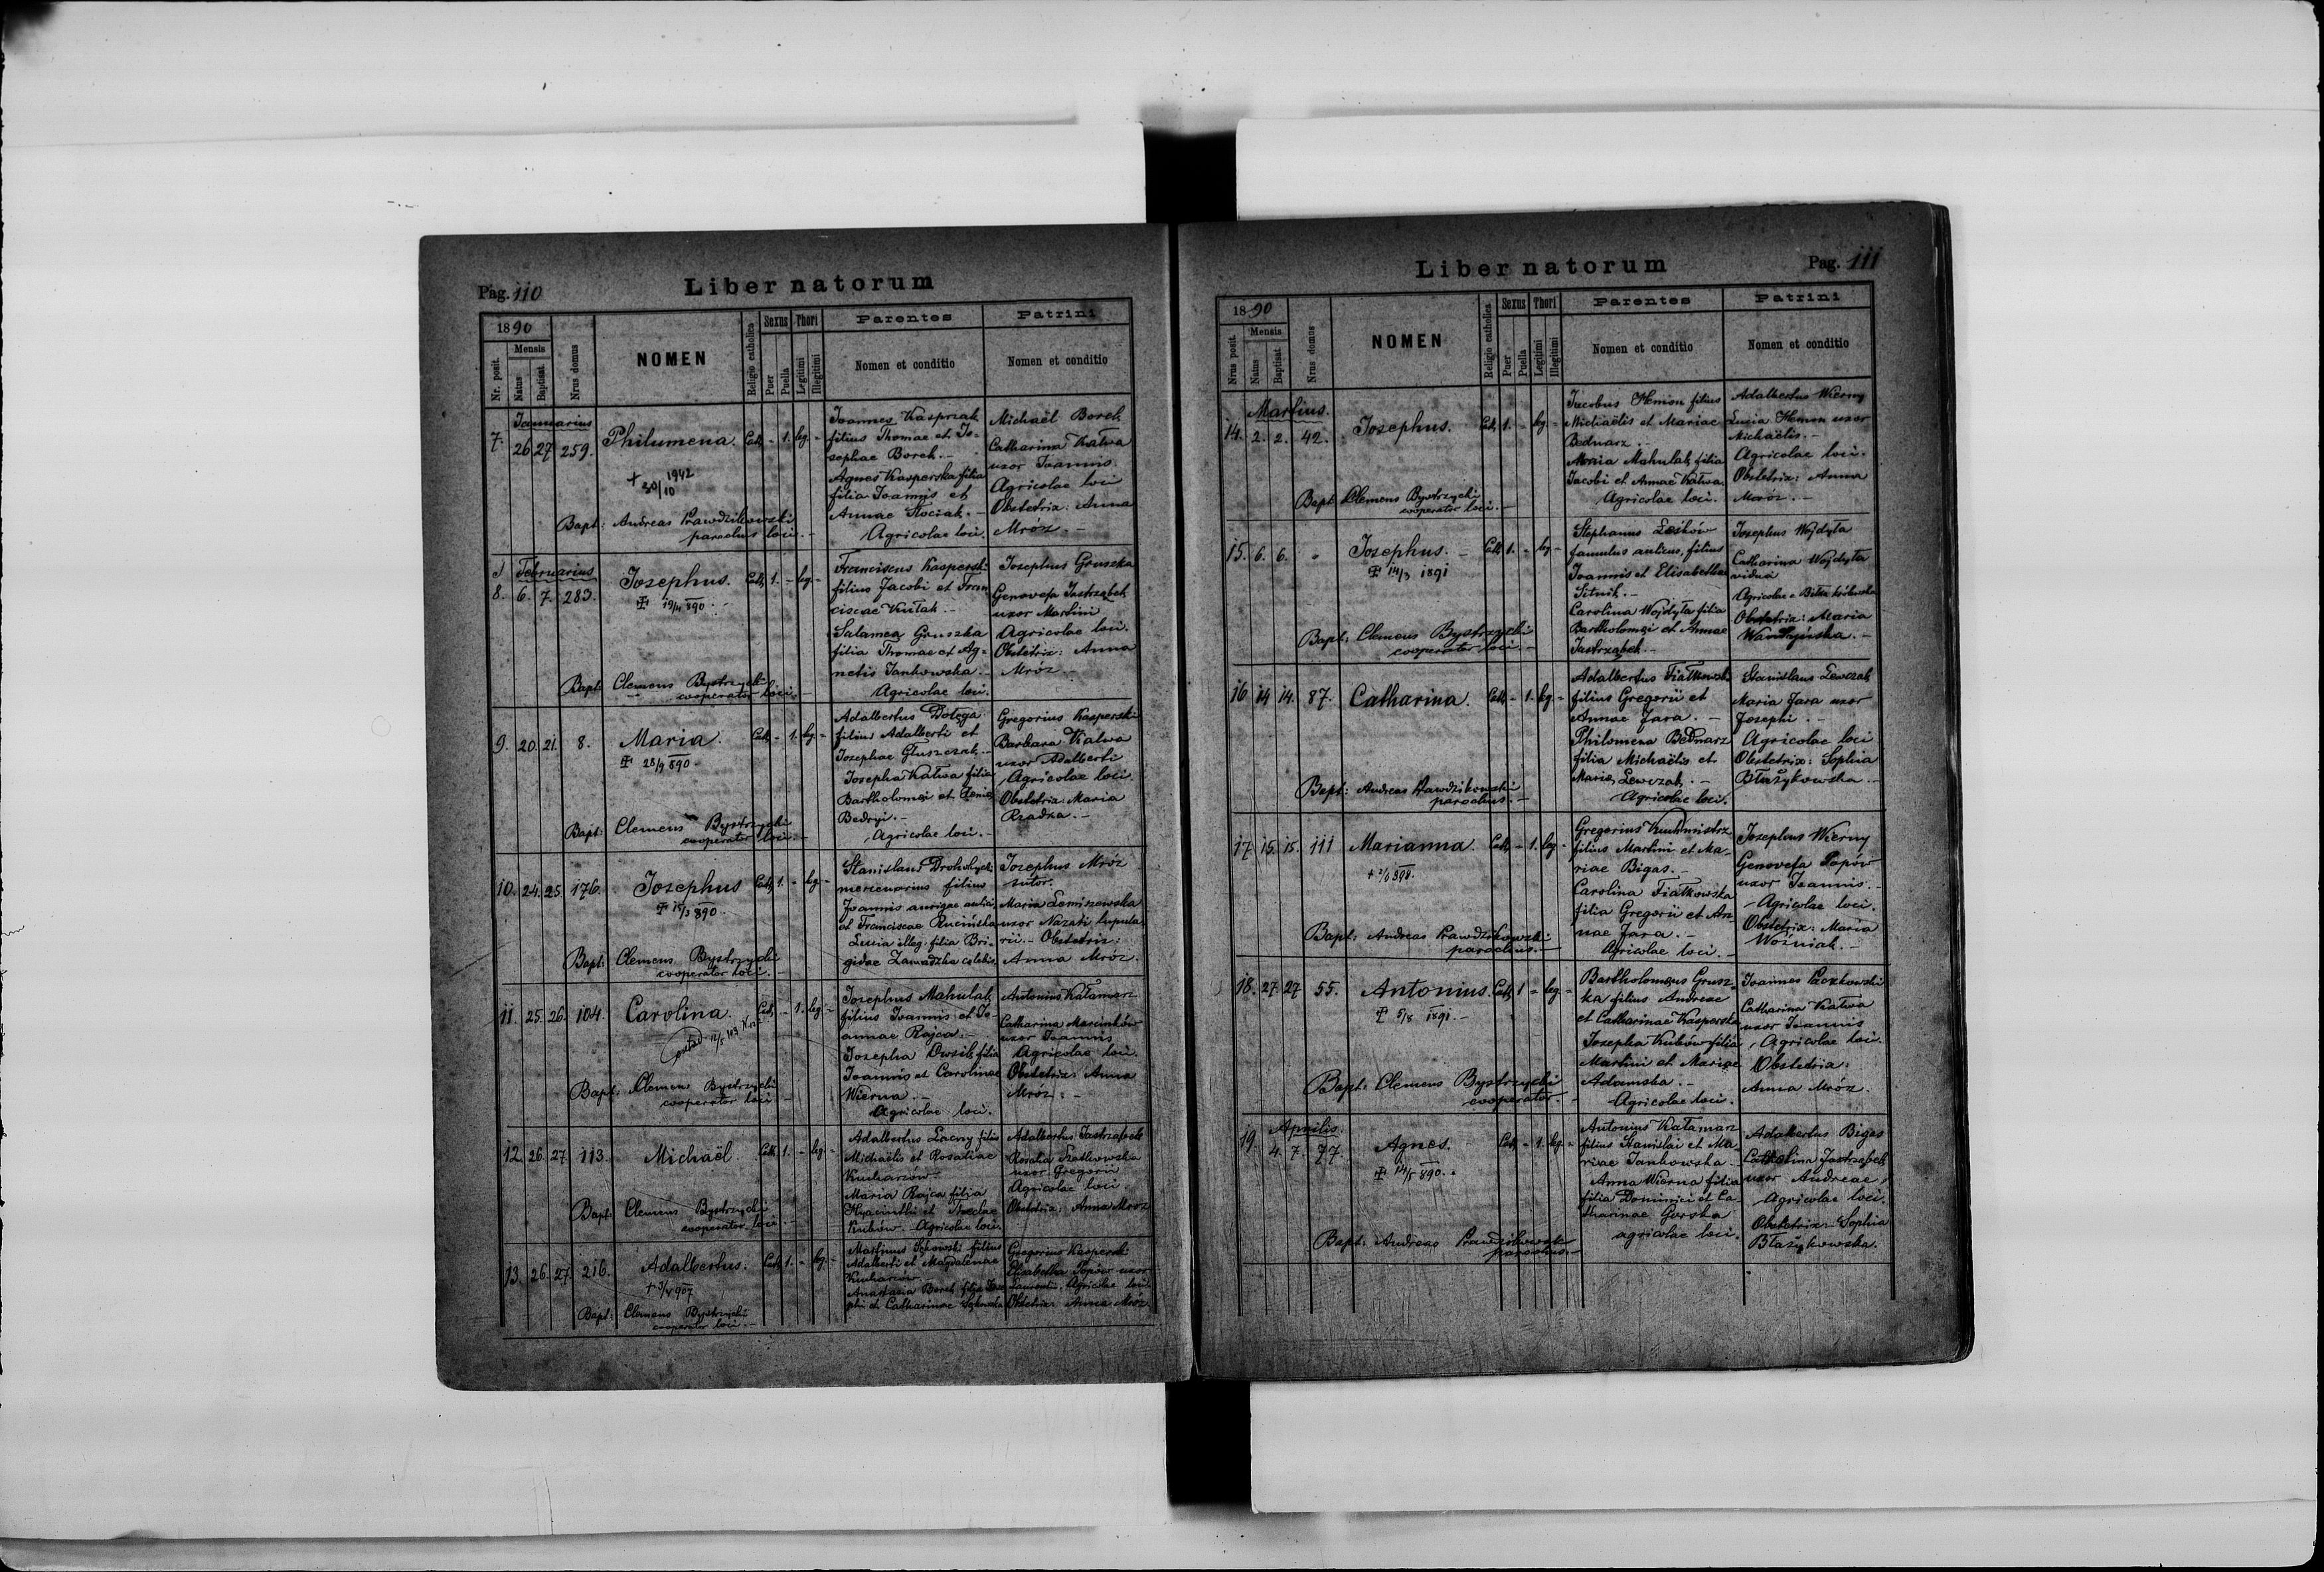 Pag. 110
Liber natorum
1890
Nr. posit.
Mensis
Natus
Baptisat.
Nrus domus
NOMEN
Religio catholica
Sexus
Puer
Puella
Thori
Legitimi
Illegitimi
Parentes
Nomen et conditio
Patrini
Nomen et conditio
Januarius
7. 26 27 259. Philumena. Cath. - 1. leg. -
+ 30/10 1942
Bapt: Andreas Prawdzikowski
parochus loci.-
Joannes Kasprzak
filius Thomae et Jo-
sephae Borek.-
Agnes Kasperska filia
filia Joannis et
Annae Kociak.-
Agricolae loci.
Michaël Borek
Catharina Katwa
uxor Joannis.
Agricolae loci
Obstetrix: Anna
Mróz.-
Februarius
8. 6. 7. 283. Josephus. Cath. 1. - leg. -
890.
Bapt: Clemens Bystrzycki
cooperator loci.-
Franciscus Kasperski
filius Jacobi et Fran
ciscae Kutak.-
Salamea Gruszka
filia Thomae et Ag=
netis Jankowska.-
Agricolae loci.
Josephus Gruszka
Genovefa Jastrząbek
uxor Martini
Agricolae loci.
Obstetrix: Anna
Mróz
9. 20. 21. 8. Maria. Cath. - 1. leg. -
28/9 890.
Bapt: Clemens Bystrzycki
cooperator loci.-
Adalbertus Dołęga
filius Adalberti et
Josephae Głuszczak.-
Josepha Katwa filia
Bartholomei et
Bedryi.-
Agricolae loci.-
Gregorius Kasperski
Barbara Katwa
uxor Adalberti
Agricolae loci.
Obstetrix: Maria
Rzadka.-
10. 24. 25 176. Josephus Cath. 1. - leg. -
890.
Bapt: Clemens Bystrzycki
cooperator loci.-
Stanislaus
mercenarius filius
Joannis aurigae
et Franciscae Rucińska
Lucia illeg. filia Bri-
gidae Zawadzka
Josephus Mróz
sutor.
Maria Lemiszewska
uxor
Obstetrix:
Anna Mróz.
11. 25. 26. 104. Carolina. Cath. - 1. leg. -
Bapt: Clemens Bystrzycki
cooperator loci
Josephus Mahulak
filius Joannis et Jo-
annae Rajca.-
Josepha filia
Joannis et Carolinae
Wierna.-
Agricolae loci.
Antonius Katamarz
Catharina Marcinków
uxor Joannis
Agricolae loci.
Obstetrix: Anna
Mróz.-
12. 26. 27. 113. Michaël Cath. 1. - leg. -
Bapt: Clemens Bystrzycki
cooperator loci.
Adalbertus Lacny filius
Michaëlis et Rosaliae
Kucharzów
Maria Rajca filia
Hyacinthi et Theclae
Kubów.- Agricolae loci.
Adalbertus Jastrząbek
Rosalia Fiałkowska
uxor Gregorii
Agricolae loci.
Obstetrix: Anna Mróz
13. 26. 27. 216. Adalbertus. Cath. 1. - leg. -
907
Bapt: Clemens Bystrzycki
cooperator loci.-
Martinus filius
Adalberti et Magdalenae
Kucharzów
Anastasia Borek filia Jose
phi et Catharinae
Gregorius Kasperski
Elisabetha Popów uxor
Agricolae loci.
Obstetrix: Anna Mróz
Liber natorum
Pag. 111
1890
Nrus posit.
Mensis
Natus
Baptisat.
Nrus domus
NOMEN
Religio catholica
Sexus
Puer
Puella
Thori
Legitimi
Illegitimi
Parentes
Nomen et conditio
Patrini
Nomen et conditio
Martius.
14. 2. 2. 42. Josephus. Cath. 1. - leg. -
Bapt: Clemens Bystrzycki
cooperator loci.-
Jacobus Hemon filius
Michaëlis et Mariae
Bednarz.-
Maria Mahulak filia
Jacobi et Annae Katwa.
Agricolae loci.
Adalbertus Wierny
Lucia Hemon uxor
Michaëlis.-
Agricolae loci.
Obstetrix: Anna
Mróz.-
15. 6. 6. - Josephus.- Cath. 1. - leg -
14/3 1891
Bapt: Clemens Bystrzycki
cooperator loci.-
Stephanus Leików
famulus aulicus, filius
Joannis et Elisabethae
Sitnik.-
Carolina Wojdyła filia
Bartholomei et Annae
Jastrząbek.-
Josephus Wojdyła
Catharina Wojdyła
vidua
Agricolae e
Obstetrix: Maria
16 14 14. 87. Catharina. Cath. - 1. leg -
Bapt: Andreas Prawdzikowski
parochus.-
Adalbertus Fiałkowski
filius Gregorii et
Annae Jara.-
Philomena Bednarz
filia Michaëlis et
Mariae Lewczak.-
Agricolae loci.
Stanislaus Lewczak
Maria Jara uxor
Josephi.-
Agricolae loci
Obstetrix: Sophia
Błażykowska.-
17. 15. 15. 111 Marianna. Cath. - 1. leg -
898.
Bapt: Andreas Prawdzikowski
parochus.-
Gregorius Kuchmistrz
filius Martini et Ma-
riae Bigas.-
Carolina Fiałkowska
filia Gregorii et An
nae Jara.-
Agricolae loci.-
Josephus Wierny
Genovefa Popów
uxor Joannis.-
Agricolae loci.
Obstetrix: Maria
Woźniak.-
18. 27. 27 55. Antonius. Cath. 1 - leg -
5/8 1891.-
Bapt: Clemens Bystrzycki
cooperator.-
Bartholomeus Grusz-
ka filius Andreae
et Catharinae Kasperska
Josepha Kubów filia
Martini et Mariae
Adamska.-
Agricolae loci.
Joannes Paczkowski
Catharina Katwa
uxor Joannis
Agricolae loci.
Obstetrix:
Anna Mróz.
Aprilis.
19. 4. 7. 77. Agnes. Cath. - 1. leg. -
14/5 890.
Bapt: Andreas Prawdzikowski
parochus.-
Antonius Katamarz
filius Stanislai et Ma
riae Jankowska.-
Anna Wierna filia
filia Dominici et Ca-
tharinae Gorska
agricolae loci.
Adalbertus Bigas
Jastrząbek
uxor Andreae
Agricolae loci.
Obstetrix:- Sophia
Błażykowska.